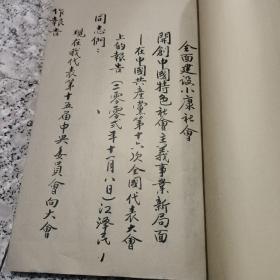 全面建设小康社會
開創中國特色社會主義事業新局面
—在中國共產黨第十六次全國代表大會
上的報告（二零零弍年十一月八日）江澤民
同志們：
現在我代表第十五届中央委員會向大會
作報告